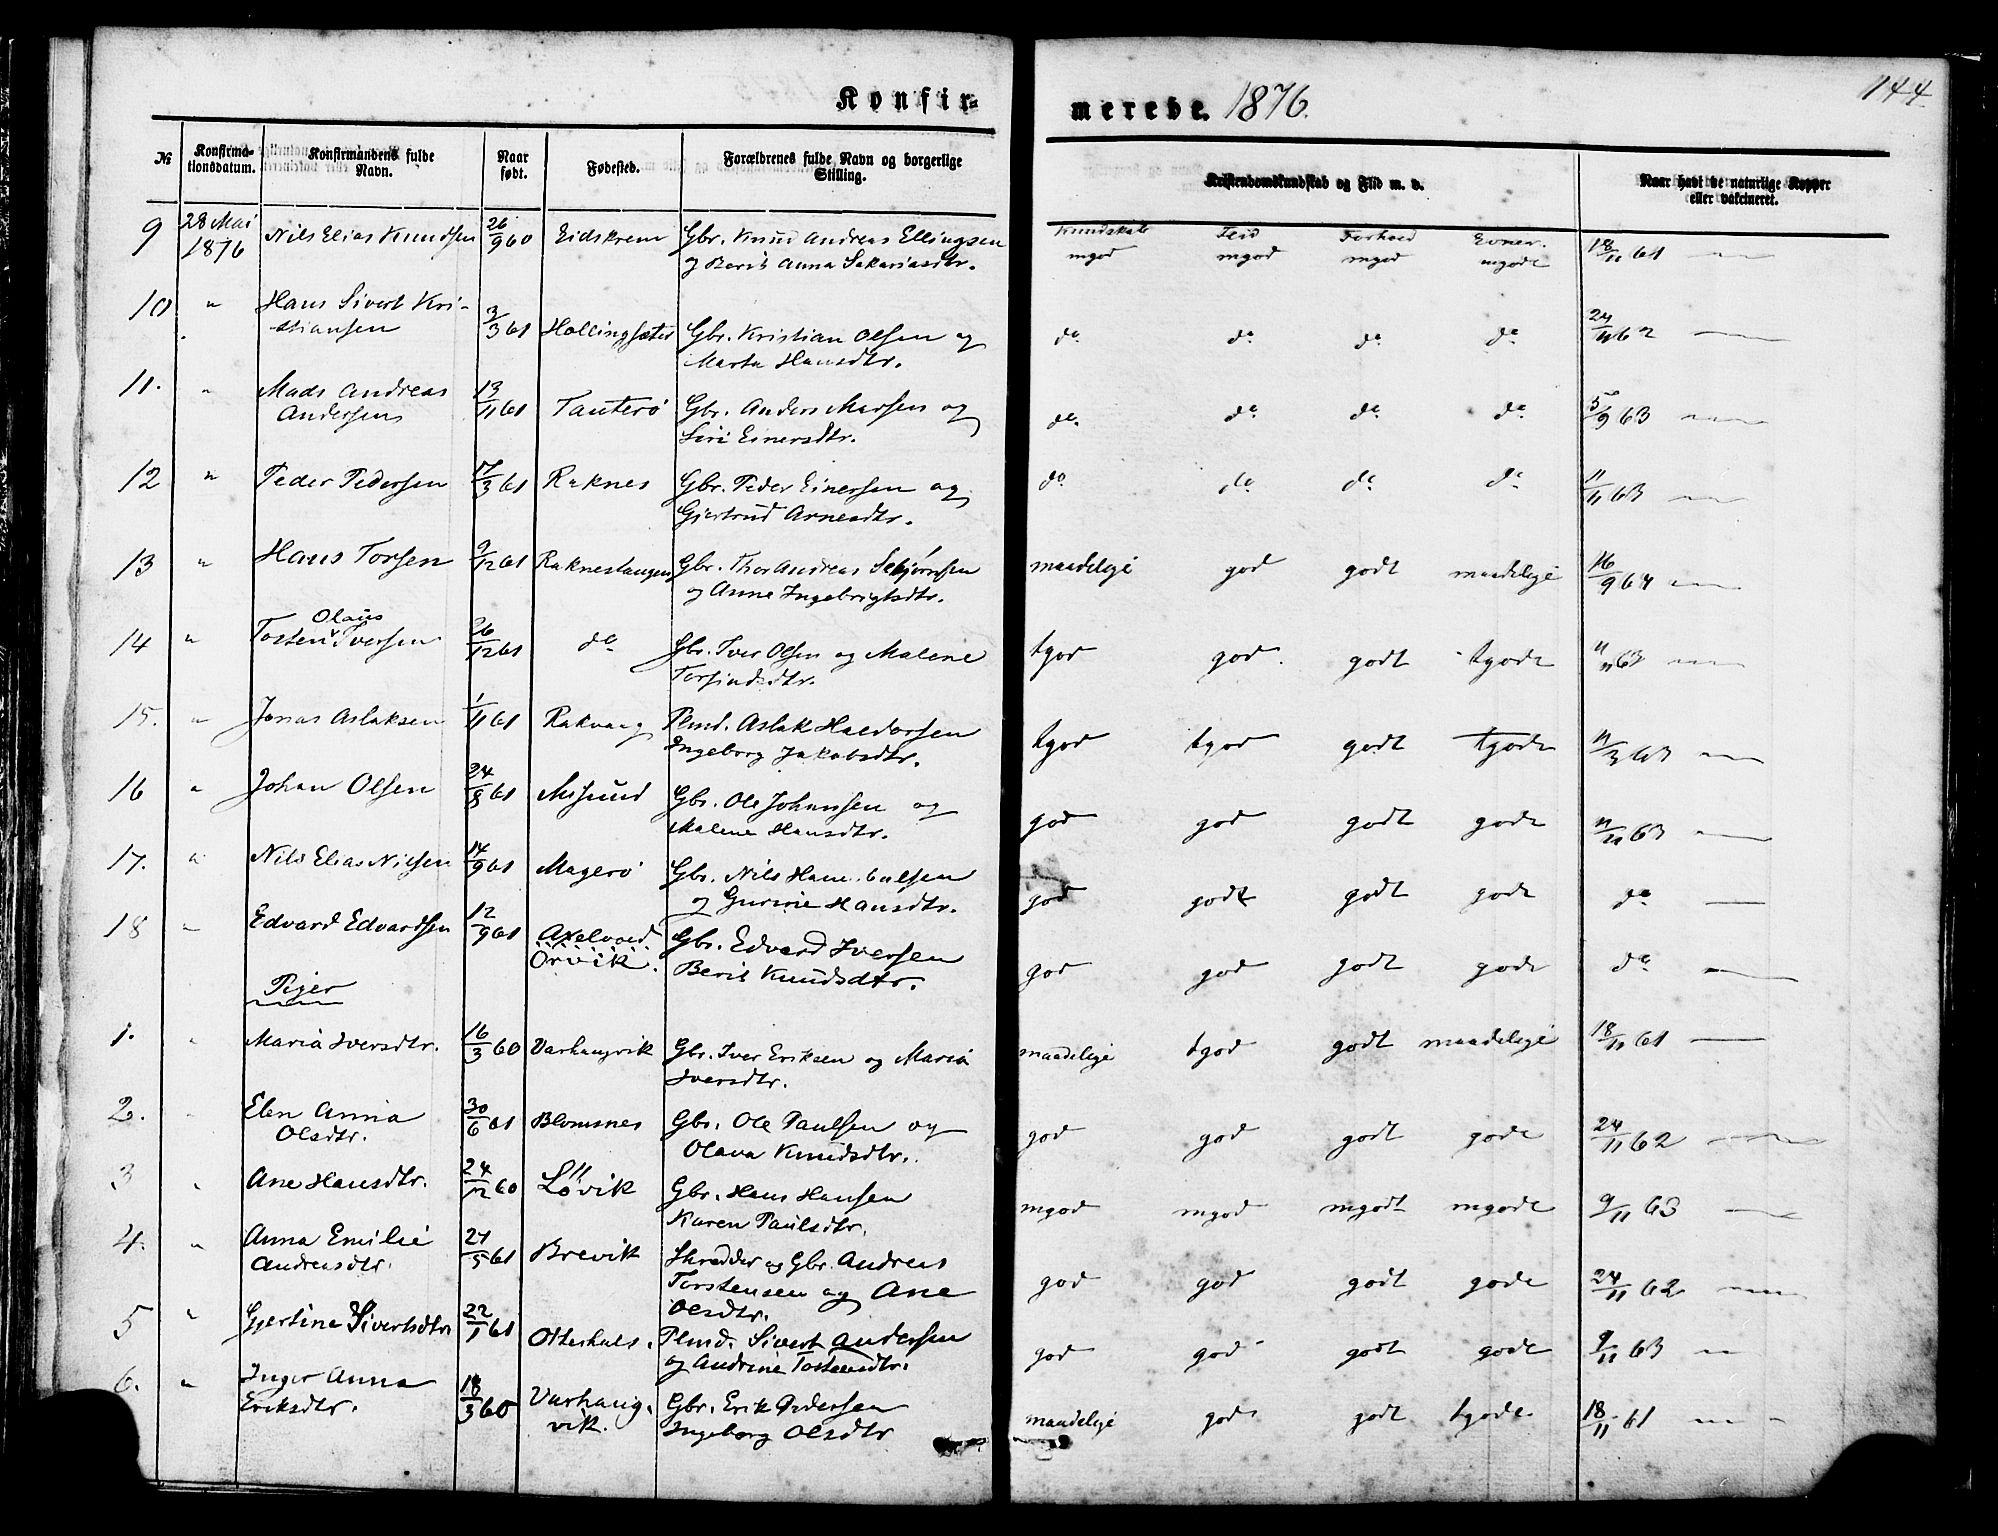 Konfir-
merede. 1876.
144
№ Konfirma- Konfirmandens fulde Naar Fødested. Forældrenes fulde Navn og borgerlige Kristendomskundskab og Flid m. v. Naar havt de naturlige Kopper
tionsdatum. Navn. født. Stilling. eller vakcineret.
9 28 Mai Nils Elias Knudsen 26/9 60 Eidskrem Gbr. Knud Andreas Ellingsen Kundskab Flid Forhold Evner. 18/11 61 —
1876 og Berit Anna Sakariasdtr. mgod mgod mgod mgode
10 " Hans Sivert Kri- 3/3 61 Hollingsæter Gbr. Kristian Olsen og do do do do 24/11 62 —
stiansen Marta Hansdtr.
11. " Mads Andreas 13/11 61 Tauterö Gbr. Anders Marsen og do do do do 5/9 63 —
Andersen Siri Einersdtr.
12 " Peder Pedersen 17/3 61 Raknes Gbr. Peder Einersen og do do do do 11/11 63 —
Gjertrud Arnesdtr.
13 " Hans Torsen 9/12 61 Raknestangen Gbr. Thor Andreas maadelige god godt maadelige 16/9 64 —
og Anne Ingebrigtsdtr.
Olaus
14 " Tosten Iversen 26/12 61 do Gbr. Iver Olsen og Malene tgod god godt tgode 11/11 63 —
Torfindsdtr.
15. " Jonas Aslaksen 1/11 61 Rakvaag Plmd. Aslak Haldorsen tgod tgod godt tgode 11/3 63 —
Ingeborg Jakobsdtr.
16 " Johan Olsen 24/8 61 Misund Gbr. Ole Johansen og god god godt gode 11/11 63 —
Malene Hansdtr.
17. " Nils Elias Nilsen 14/9 61 Magerö Gbr. Nils Hans god godt godt gode do —
og Gurine Hansdtr.
18 " Edvard Edvardsen 12/9 61 Axelvold Gbr. Edvard Iversen god god godt gode do —
Örvik. Berit Knudsdtr.
Piger
1. " Maria Iversdtr. 16/3 60 Varhaugvik Gbr. Iver Eriksen og Maria maadelige tgod godt maadelige 18/11 61 —
Iversdtr.
2. " Elen Anna 30/6 61 Blomsnes Gbr. Ole Paulsen og god god godt gode 24/11 62 —
Olsdtr. Olava Knudsdtr.
3 " Ane Hansdtr. 24/12 60 Lövik Gbr. Hans Hansen mgod mgod mgodt mgode 9/11 63 —
Karen Paulsdtr.
4. " Anna Emilie 24/5 61 Brevik Skredder og Gbr. Andreas god god godt gode 24/11 62 —
Andreasdtr. Torstensen og Ane
Olsdtr.
5 " Gjertine Sivertsdtr 22/1 61 Otterhals. Plmd. Sivert Andersen god god godt gode 9/11 63 —
og Andrine Tostensdtr.
6. " Inger Anna 18/3 60 Varhaug- Gbr. Erik Pedersen maadelige god godt tgode 18/11 61 —
Eriksdtr. vik. Ingeborg Olsdtr